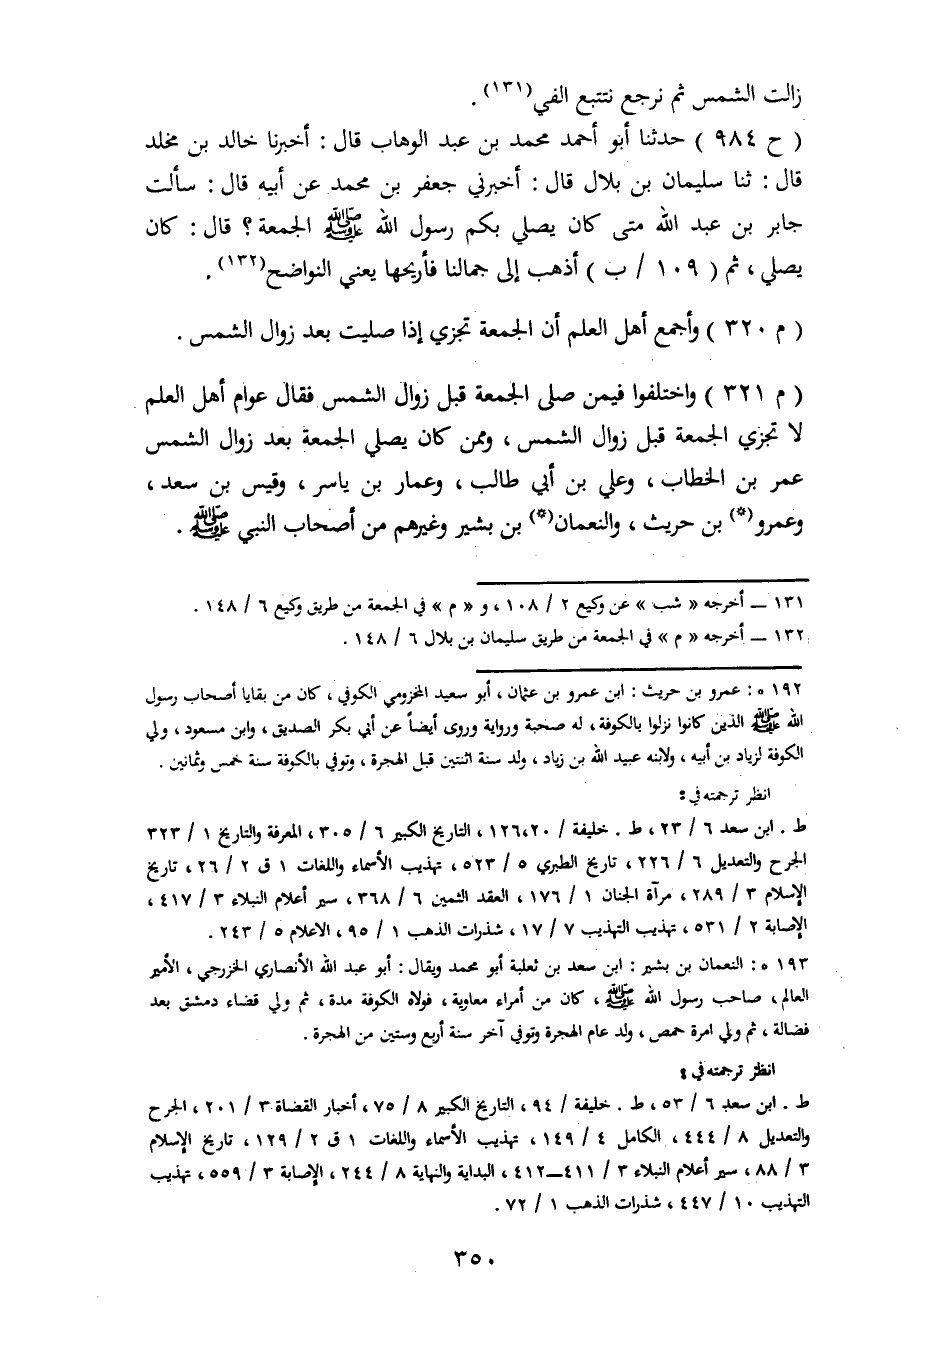 زالت الشمس ثم نرجع نتتبع الفي(١٣١) .
( ح ٩٨٤ ) حدثنا أبو أحمد محمد بن عبد الوهاب قال : أخبرنا خالد بن مخلد
قال : ثنا سليمان بن بلال قال : أخبرني جعفر بن محمد عن أبيه قال : سألت
جابر بن عبد الله متى كان يصلي بكم رسول الله ﷺ الجمعة ؟ قال : كان
يصلي ، ثم ( ١٠٩ / ب ) أذهب إلى جمالنا فأريحها يعني النواضح(١٣٢) .
( م ٣٢٠ ) وأجمع أهل العلم أن الجمعة تجزي إذا صليت بعد زوال الشمس .
( م ٣٢١ ) واختلفوا فيمن صلى الجمعة قبل زوال الشمس فقال عوام أهل العلم
لا تجزي الجمعة قبل زوال الشمس ، وممن كان يصلي الجمعة بعد زوال الشمس
عمر بن الخطاب ، وعلي بن أبي طالب ، وعمار بن ياسر ، وقيس بن سعد ،
وعمرو(*) بن حريث ، والنعمان(*) بن بشير وغيرهم من أصحاب النبي ﷺ .
١٣١ ــ أخرجه « شب » عن وكيع ٢ / ١٠٨ ، و « م » في الجمعة من طريق وكيع ٦ / ١٤٨ .
١٣٢ ــ أخرجه « م » في الجمعة من طريق سليمان بن بلال ٦ / ١٤٨ .
١٩٢ ه : عمرو بن حريث : ابن عمرو بن عثمان ، أبو سعيد المخزومي الكوفي ، كان من بقايا أصحاب رسول
الله ﷺ الذين كانوا نزلوا بالكوفة ، له صحبة ورواية وروى أيضاً عن أبي بكر الصديق ، وابن مسعود ، ولي
الكوفة لزياد بن أبيه ، ولابنه عبيد الله بن زياد ، ولد سنة اثنتين قبل الهجرة ، وتوفي بالكوفة سنة خمس وثمانين .
انظر ترجمته في :
ط . ابن سعد ٦ / ٢٣ ، ط . خليفة / ١٢٦،٢٠ ، التاريخ الكبير ٦ / ٣٠٥ ، المعرفة والتاريخ ١ / ٣٢٣
الجرح والتعديل ٦ / ٢٢٦ ، تاريخ الطبري ٥ / ٥٢٣ ، تهذيب الأسماء واللغات ١ ق ٢ / ٢٦ ، تاريخ
الإسلام ٣ / ٢٨٩ ، مرآة الجنان ١ / ١٧٦ ، العقد الثمين ٦ / ٣٦٨ ، سير أعلام النبلاء ٣ / ٤١٧ ،
الإصابة ٢ / ٥٣١ ، تهذيب التهذيب ٧ / ١٧ ، شذرات الذهب ١ / ٩٥ ، الاعلام ٥ / ٢٤٣ .
١٩٣ ه : النعمان بن بشير : ابن سعد بن ثعلبة أبو محمد ويقال : أبو عبد الله الأنصاري الخزرجي ، الأمير
العالم ، صاحب رسول الله ﷺ ، كان من أمراء معاوية ، فولاه الكوفة مدة ، ثم ولي قضاء دمشق بعد
فضالة ، ثم ولي امرة حمص ، ولد عام الهجرة وتوفي آخر سنة أربع وستين من الهجرة .
انظر ترجمته في :
ط . ابن سعد ٦ / ٥٣ ، ط . خليفة / ٩٤ ، التاريخ الكبير ٨ / ٧٥ ، أخبار القضاة ٣ / ٢٠١ ، الجرح
والتعديل ٨ / ٤٤٤ ، الكامل ٤ / ١٤٩ ، تهذيب الأسماء واللغات ١ ق ٢ / ١٢٩ ، تاريخ الإسلام
٣ / ٨٨ ، سير أعلام النبلاء ٣ / ٤١١ــ٤١٢ ، البداية والنهاية ٨ / ٢٤٤ ، الإصابة ٣ / ٥٥٩ ، تهذيب
التهذيب ١٠ / ٤٤٧ ، شذرات الذهب ١ / ٧٢ .
٣٥٠